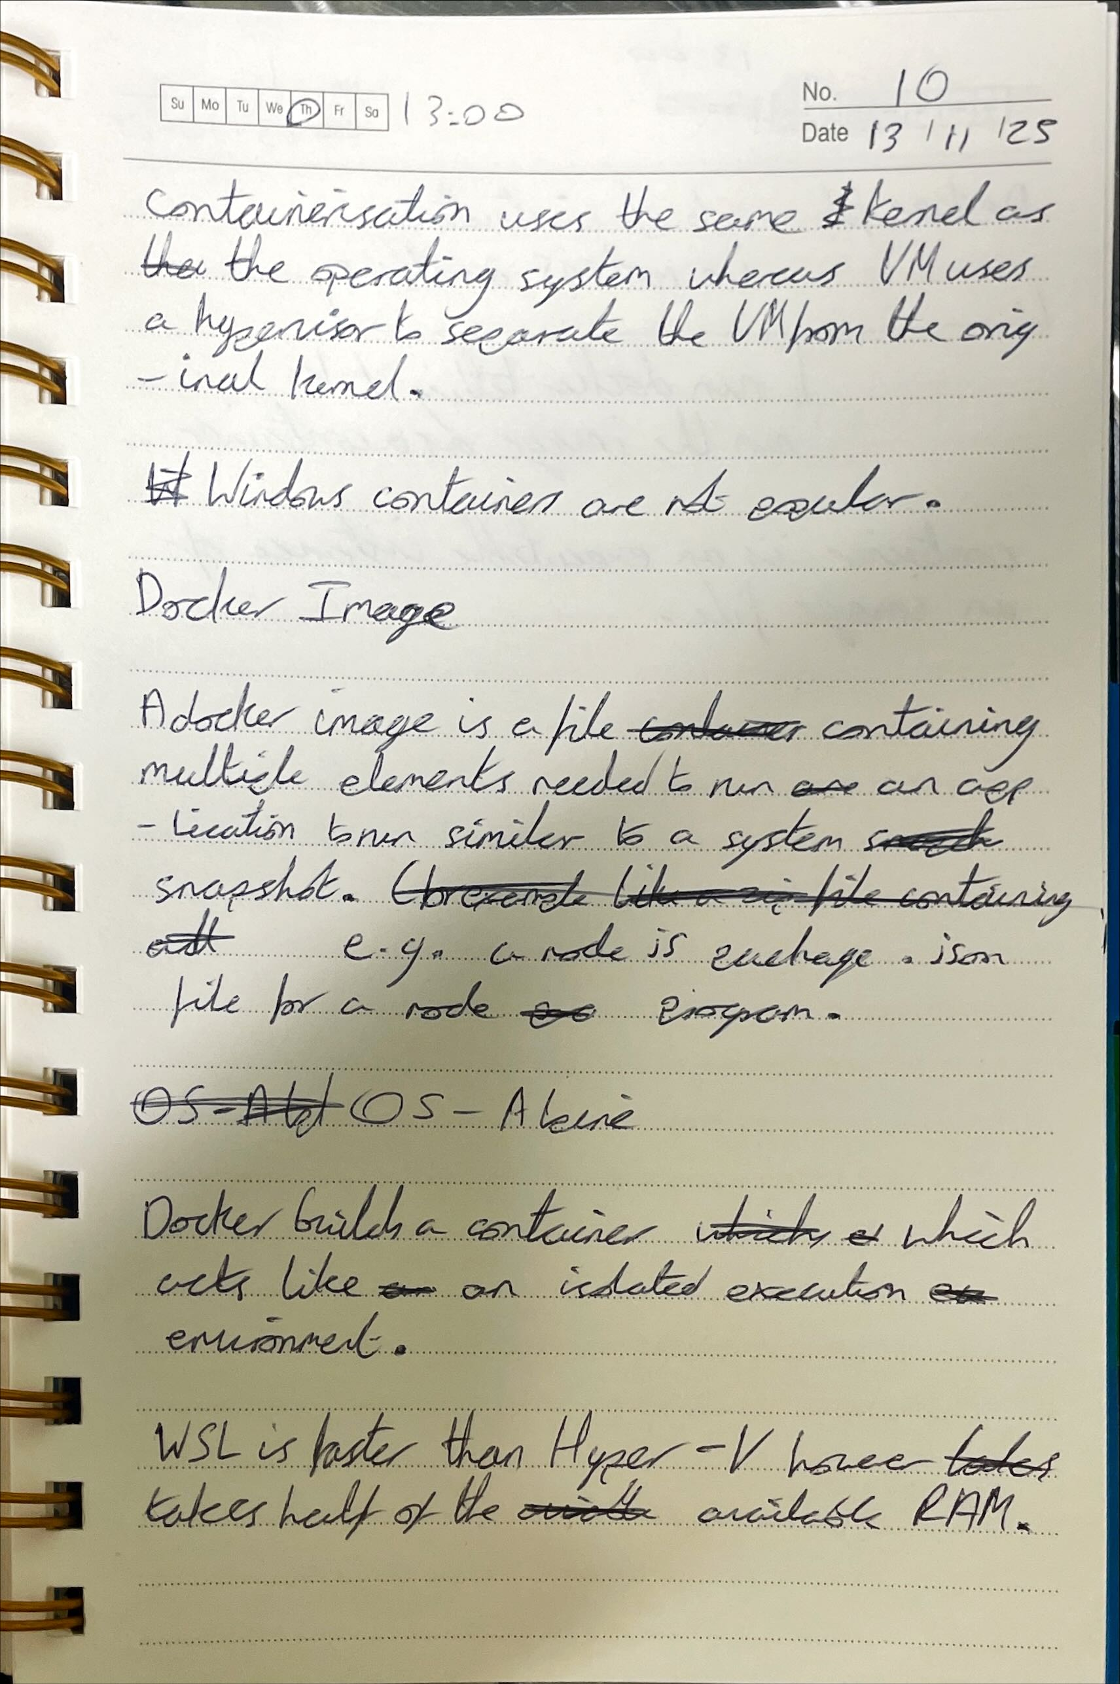 Su Mo Tu We Th Fr Sa 13:00
No. 10
Date 13 / 11 / 25
Containerisation uses the same kernel as
the the operating system whereas VM uses
a hypervisor to separate the VM from the orig
-inal kernel.
Windows containers are not popular.
Docker Image
A docker image is a file container containing
multiple elements needed to run are an app
-lication to run similar to a system
snapshot. (for example like a zip file containing
all e.g. a node is package.json
file for a node program.
OS-Alp OS - Alpine
Docker builds a container which which
acts like an an isolated execution
environment.
WSL is faster than Hyper-V takes
takes half of the available RAM.